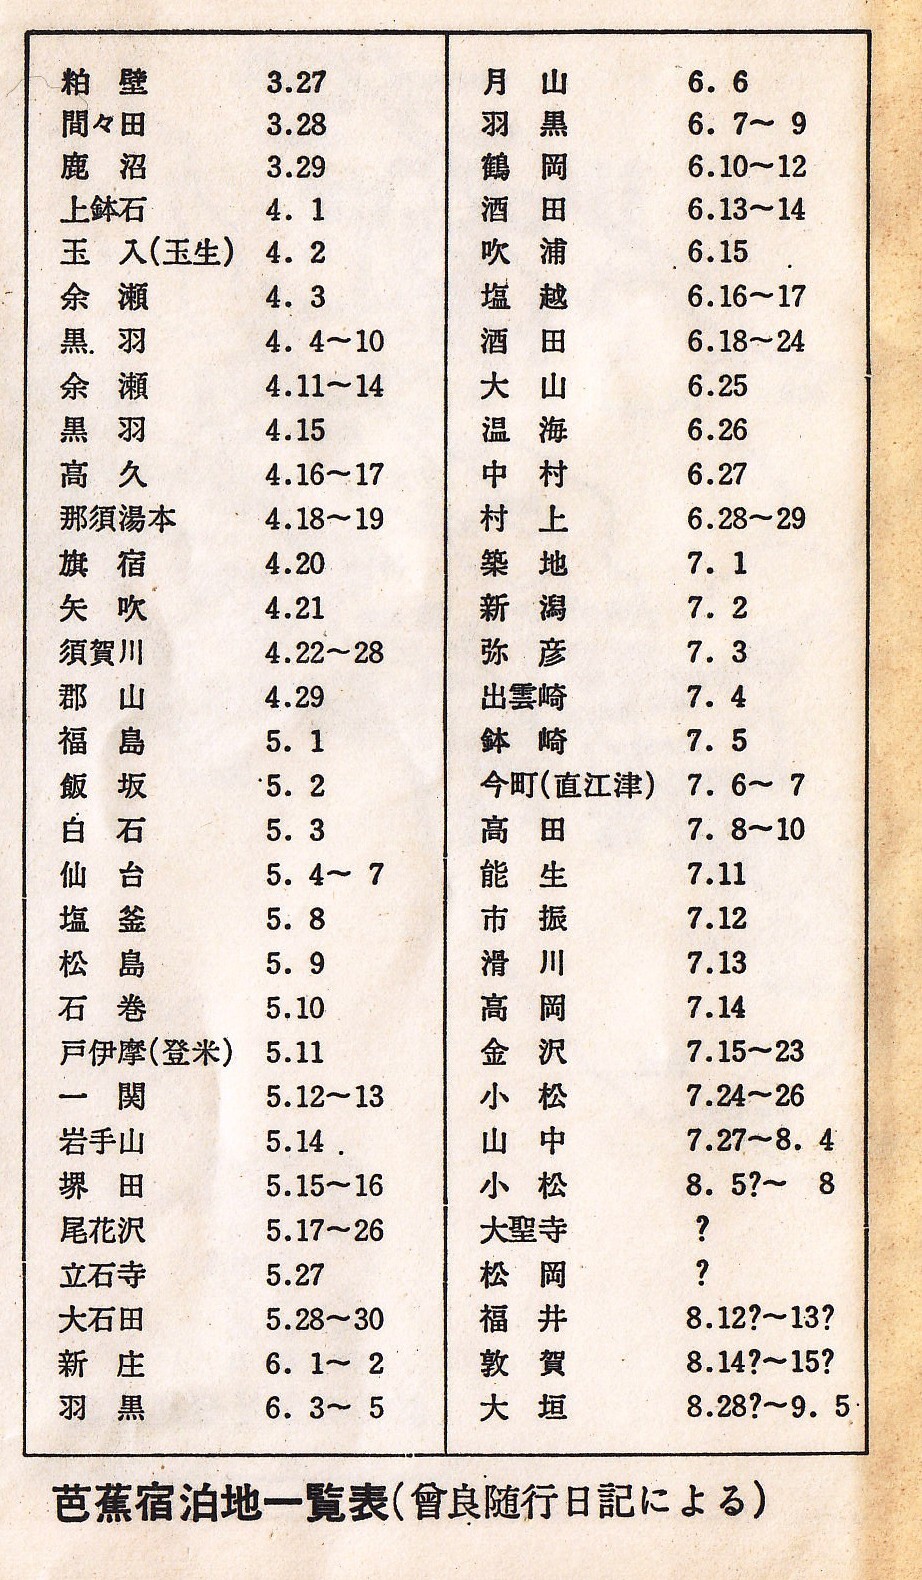 粕壁 3.27
間々田 3.28
鹿沼 3.29
上鉢石 4. 1
玉入(玉生) 4. 2
余瀬 4. 3
黒羽 4. 4~10
余瀬 4.11~14
黒羽 4.15
高久 4.16~17
那須湯本 4.18~19
旗宿 4.20
矢吹 4.21
須賀川 4.22~28
郡山 4.29
福島 5. 1
飯坂 5. 2
白石 5. 3
仙台 5. 4~ 7
塩釜 5. 8
松島 5. 9
石巻 5.10
戸伊摩(登米) 5.11
一関 5.12~13
岩手山 5.14
堺田 5.15~16
尾花沢 5.17~26
立石寺 5.27
大石田 5.28~30
新庄 6. 1~ 2
羽黒 6. 3~ 5
月山 6. 6
羽黒 6. 7~ 9
鶴岡 6.10~12
酒田 6.13~14
吹浦 6.15
塩越 6.16~17
酒田 6.18~24
大山 6.25
温海 6.26
中村 6.27
村上 6.28~29
築地 7. 1
新潟 7. 2
弥彦 7. 3
出雲崎 7. 4
鉢崎 7. 5
今町(直江津) 7. 6~ 7
高田 7. 8~10
能生 7.11
市振 7.12
滑川 7.13
高岡 7.14
金沢 7.15~23
小松 7.24~26
山中 7.27~8. 4
小松 8. 5?~ 8
大聖寺 ?
松岡 ?
福井 8.12?~13?
敦賀 8.14?~15?
大垣 8.28?~9. 5
芭蕉宿泊地一覧表(曾良随行日記による)